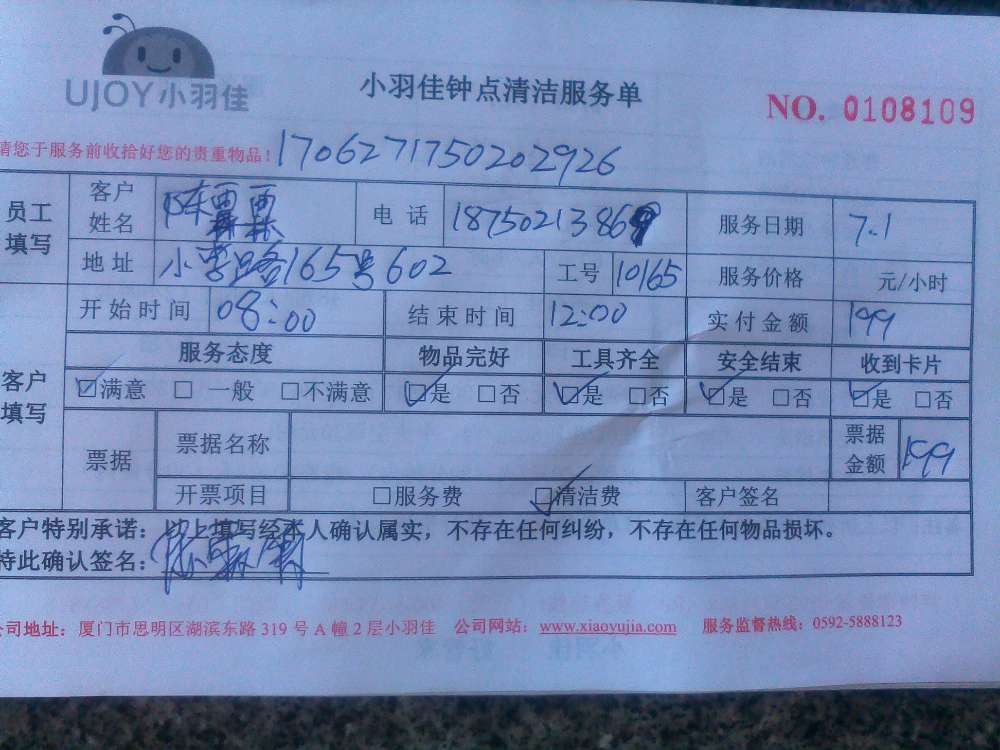 UJOY小羽佳
小羽佳钟点清洁服务单
NO. 0108109
请您于服务前收拾好您的贵重物品! 1706271750202926
员工填写 客户姓名 陈 电话 1875021386 服务日期 7.1
地址 路165号602 工号 10165 服务价格 元/小时
开始时间 08:00 结束时间 12:00 实付金额 199
客户填写 服务态度 物品完好 工具齐全 安全结束 收到卡片
☑满意 □一般 □不满意 ☑是 □否 ☑是 □否 ☑是 □否 ☑是 □否
票据 票据名称 票据金额 199
开票项目 □服务费 ☑清洁费 客户签名
客户特别承诺：以上填写经本人确认属实，不存在任何纠纷，不存在任何物品损坏。
特此确认签名：陈
公司地址：厦门市思明区湖滨东路 319 号 A 幢 2 层小羽佳 公司网站：www.xiaoyujia.com 服务监督热线：0592-5888123